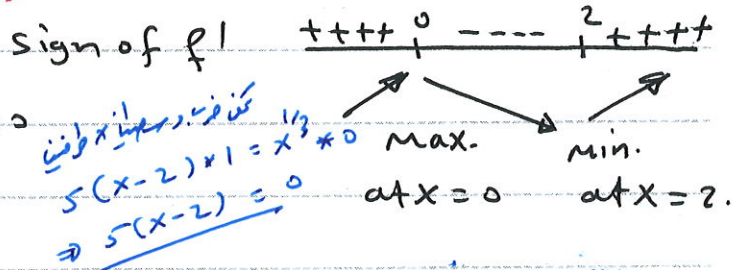 Sign of f' ++++ 0 ---- 2 ++++
Max. Min.
at x = 0 at x = 2.
5(x-2)*1 = x^1/3 * 0
⇒ 5(x-2) = 0